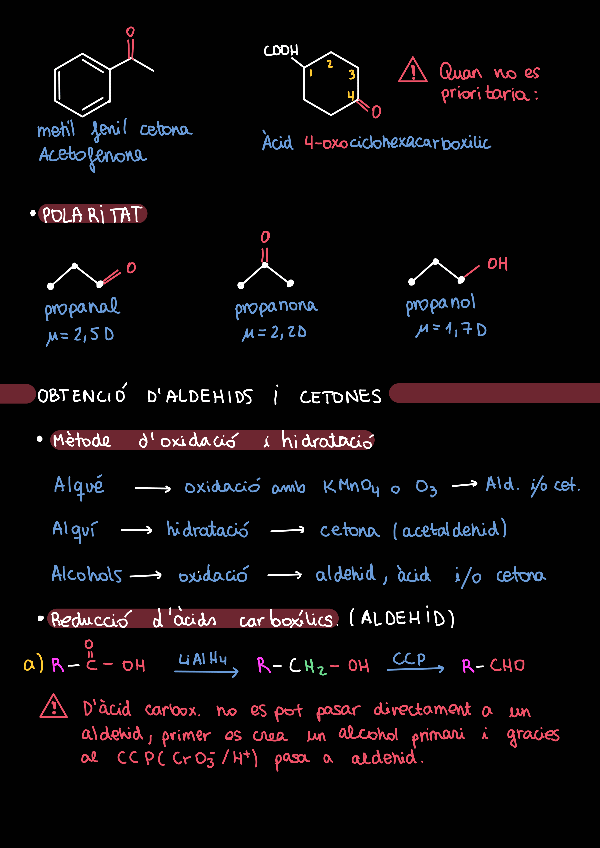 O
COOH
1 2 3 4
O
⚠ Quan no es
prioritaria:
metil fenil cetona
Acetofenona
Àcid 4-oxociclohexacarboxilic
• POLARITAT
O
O
OH
propanal
propanona
propanol
µ = 2,5 D
µ = 2,2 D
µ = 1,7 D
OBTENCIÓ D'ALDEHIDS i CETONES
• Mètode d'oxidació i hidratació
Alqué → oxidació amb KMnO4 o O3 → Ald. i/o cet.
Alquí → hidratació → cetona (acetaldehid)
Alcohols → oxidació → aldehid, àcid i/o cetona
• Reducció d'àcids carboxílics. (ALDEHID)
O
a) R - C - OH LiAlH4 R - CH2 - OH CCP R - CHO
⚠ D'àcid carbox. no es pot pasar directament a un
aldehid, primer es crea un alcohol primari i gracies
al CCP (CrO3⁻/H⁺) pasa a aldehid.